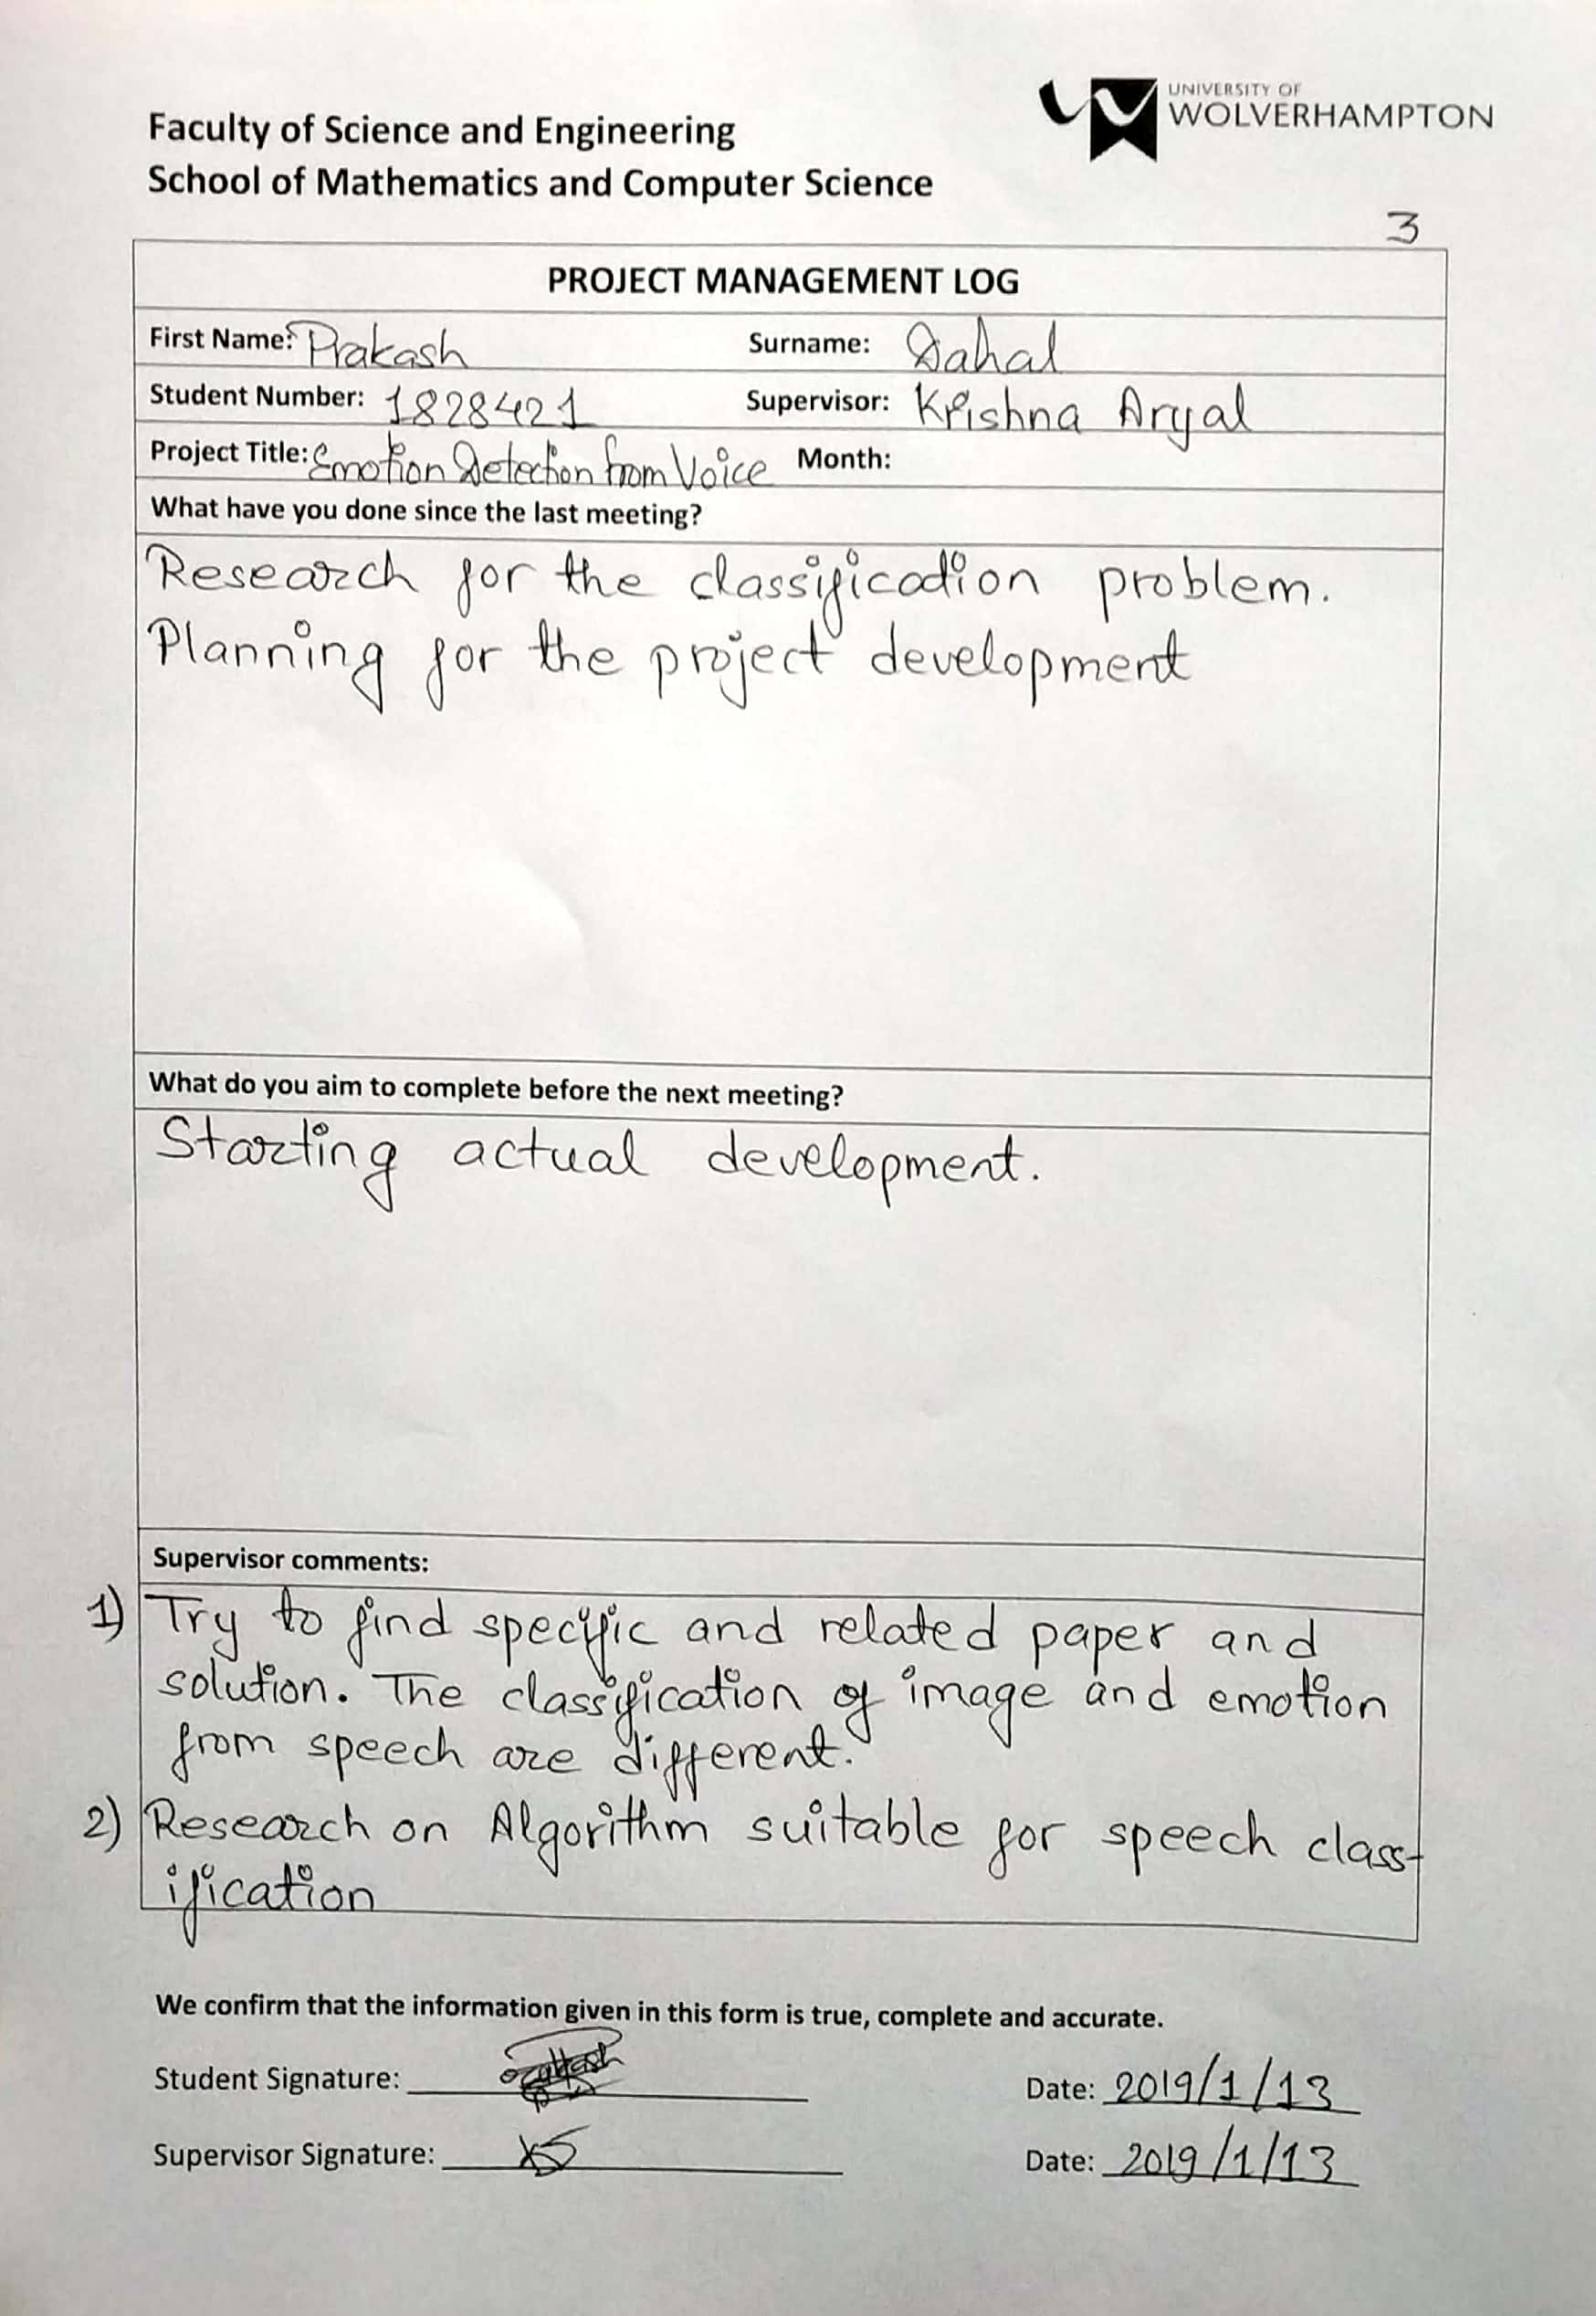 UNIVERSITY OF
WOLVERHAMPTON
Faculty of Science and Engineering
School of Mathematics and Computer Science
3
PROJECT MANAGEMENT LOG
First Name: Prakash Surname: Dahal
Student Number: 1828421 Supervisor: Krishna Aryal
Project Title: Emotion Detection from Voice Month:
What have you done since the last meeting?
Research for the classification problem.
Planning for the project development
What do you aim to complete before the next meeting?
Starting actual development.
Supervisor comments:
1) Try to find specific and related paper and
solution. The classification of image and emotion
from speech are different.
2) Research on Algorithm suitable for speech class-
ification
We confirm that the information given in this form is true, complete and accurate.
Student Signature: Date: 2019/1/13
Supervisor Signature: Date: 2019/1/13